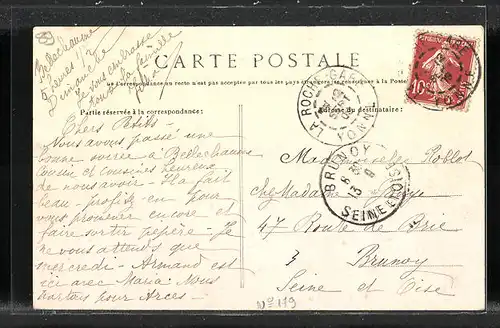 89
CARTE POSTALE
Bellechaume
5 heures 1/2
Dimanche
Je vous embrasse
toute la famille
La Correspondance au recto n'est pas acceptée par tous les pays étrangers
Partie réservée à la correspondance:
Adresse du destinataire:
Chers Petits -
Nous avons passé une
bonne soirée à Bellechaume
Cousin et cousines heureux
de nous avoir - Il a fait
beau - profitez en pour
vous promener encore et
faire sortir pépère - Je
ne vous attends que
mercredi - Armand est
ici avec Maria. Nous
partons pour Arces -
10
LA ROCHE-GARE
YONNE
BRUNOY
SEINE ET OISE
Mademoiselle Roblot
chez Madame
47 Route de Brie
3 Brunoy
Seine et Oise
No 179